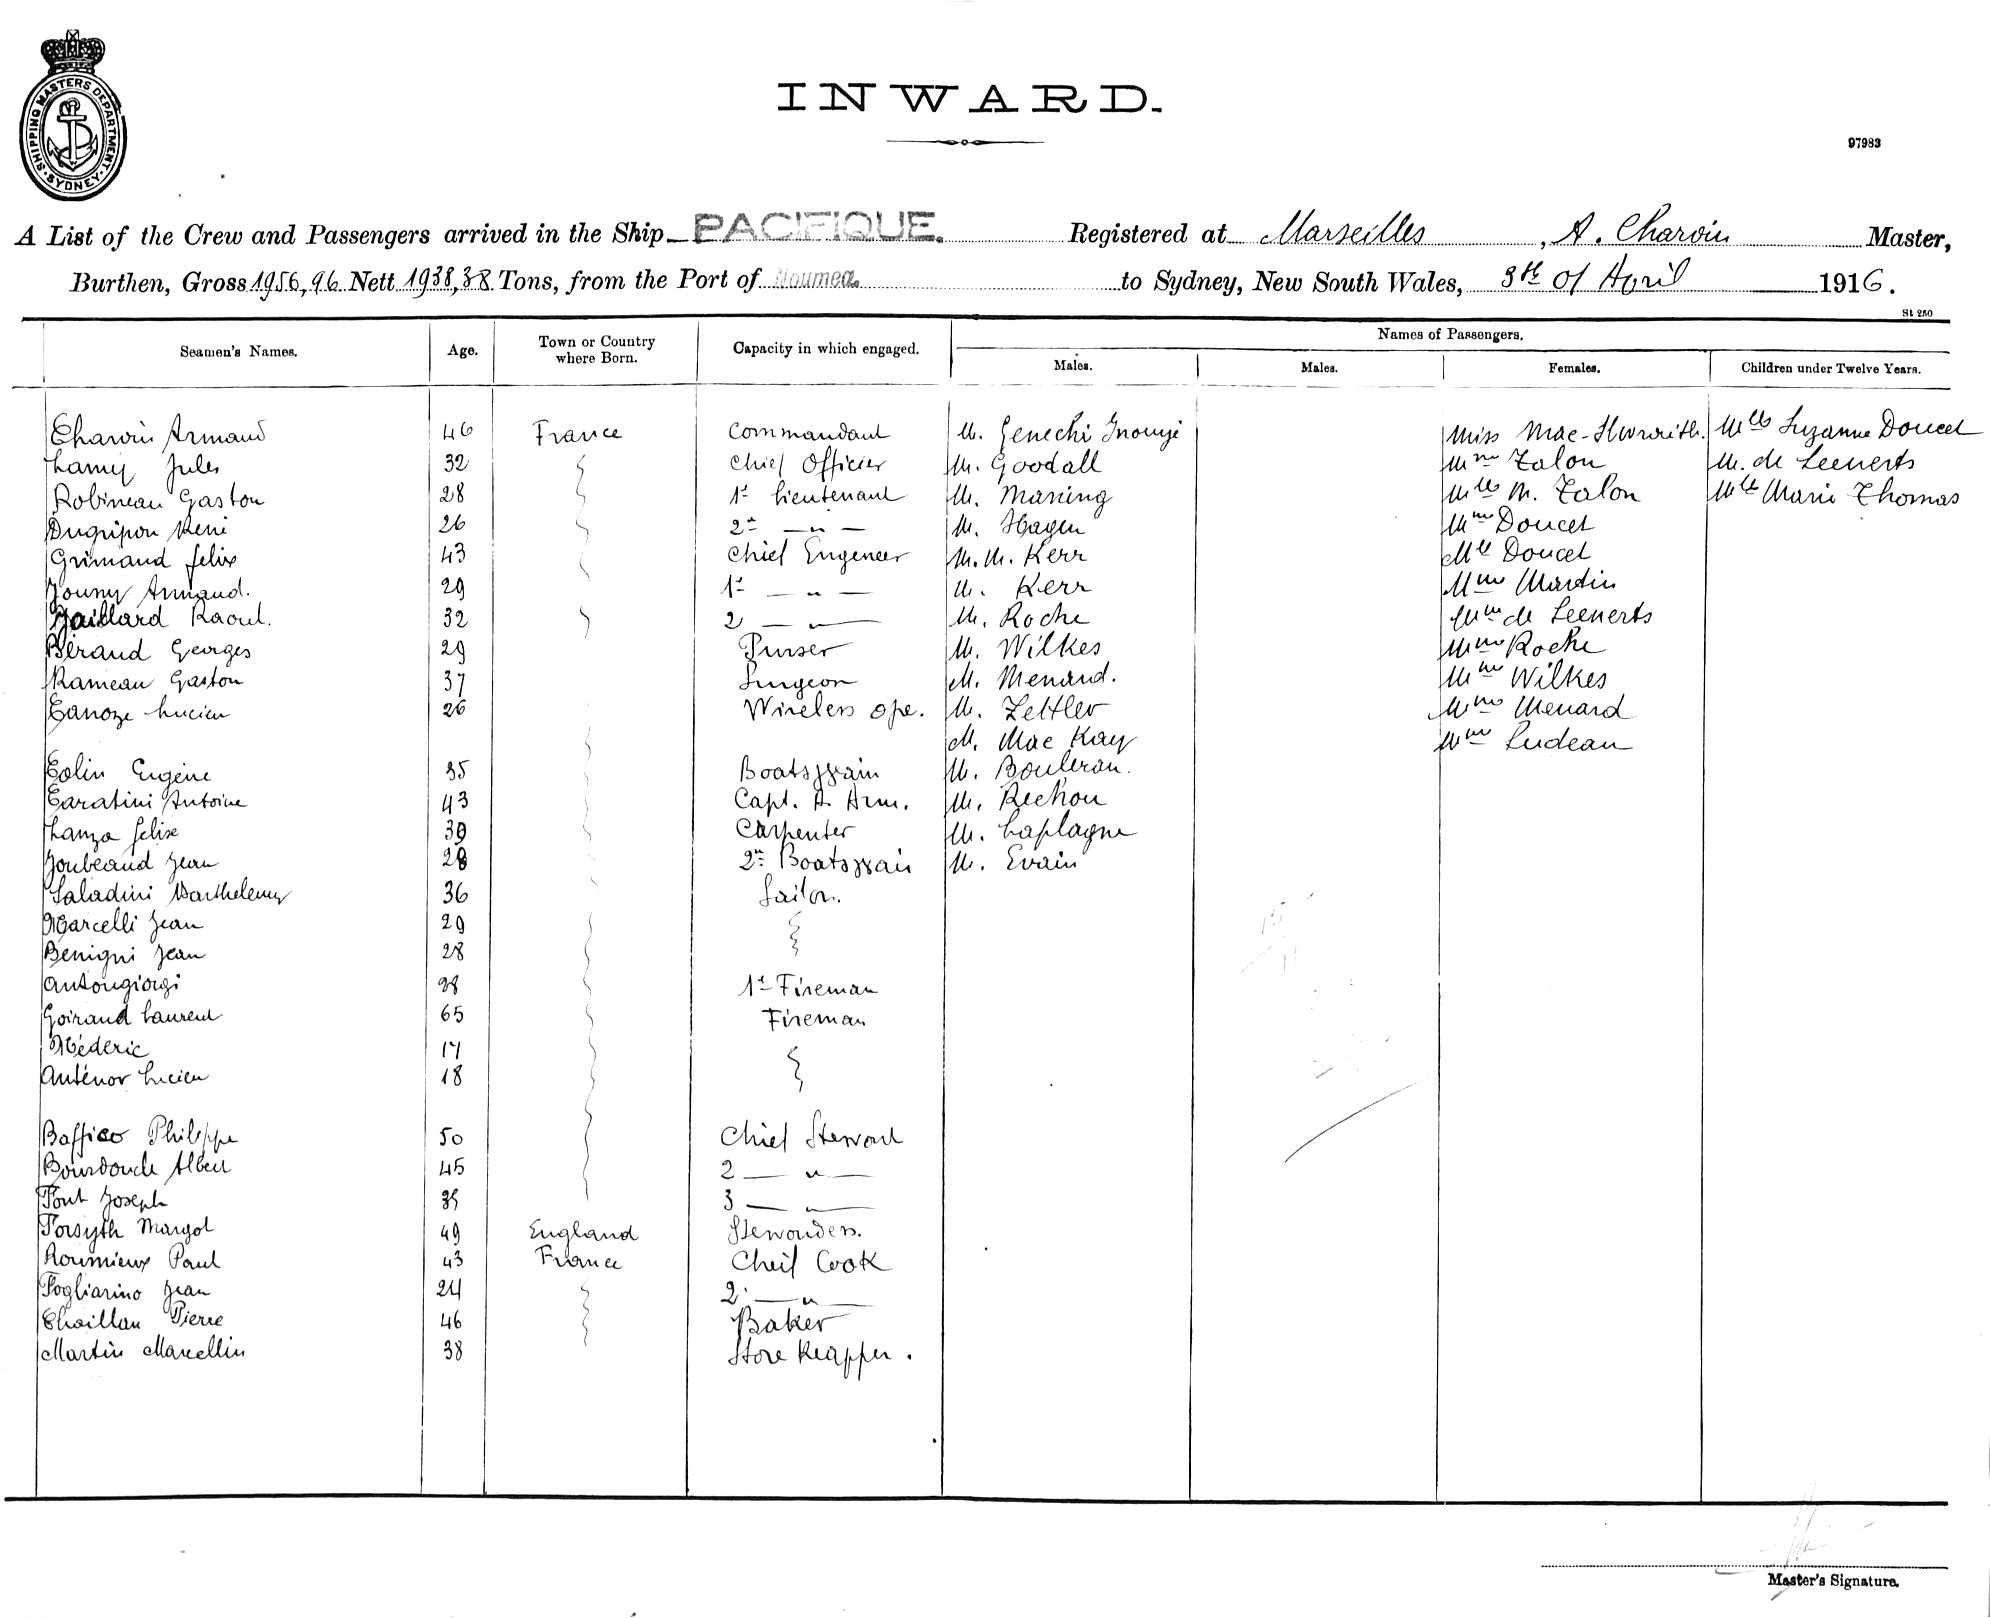 SHIPPING MASTERS DEPARTMENT
SYDNEY
INWARD.
97983
A List of the Crew and Passengers arrived in the Ship PACIFIQUE. Registered at Marseilles, A. Charvin Master,
Burthen, Gross 1956,96 Nett 1938,38 Tons, from the Port of Noumea. to Sydney, New South Wales, 8th of April 1916.
St 250
Seamen's Names. Age. Town or Country where Born. Capacity in which engaged. Names of Passengers.
Males. Males. Females. Children under Twelve Years.
Charvin Armand 46 France Commandant M. Genechi Inouyé Miss Mlles Suzanne Doucet
Lamy Jules 32 Chief Officier M. Goodall Mme Talon M. de Leenerts
Robineau Gaston 28 1r Lieutenant M. Maning Mlles M. Talon Mlle Marie Thomas
Dugripon René 26 2n — " — M. Hagen Mme Doucet
Grimaud felix 43 Chief Engeneer M. M. Kerr Mlle Doucet
Jouny Armand. 29 1r — " — M. Kerr Mme Martin
Gaillard Raoul. 32 2 — " — M. Roche Mme de Leenerts
Béraud Georges 29 Purser M. Wilkes Mme Roche
Rameau Gaston 37 Surgeon M. Menard. Mme Wilkes
Canoze Lucien 26 Wireless ope. M. Zettler Mme Menard
M. Mac Kay Mme Ludeau
Colin Eugène 35 Boatsswain M. Bouleran.
Caratini Antoine 43 Capt. A. Arm. M. Rechou
Lanza felix 39 Carpenter M. Laplagne
Joubeaud Jean 28 2n Boatsswain M. Evain
Saladini Barthelemy 36 Sailor.
Marcelli Jean 29
Benigni Jean 28
Antongiorgi 28 1r Fireman
Goirand Laurent 65 Fireman
Méderic 17
Anténor Lucien 18
Baffico Philippe 50 Chief Steward
Bourdoncle Albert 45 2 — " —
Pont Joseph 35 3 — " —
Forsyth Margot 49 England Stewardess.
Roumieux Paul 43 France Cheif Cook
Fogliarino Jean 24 2 — " —
Chaillan Pierre 46 Baker
Martin Marcellin 38 Store Keapper.
Master's Signature.